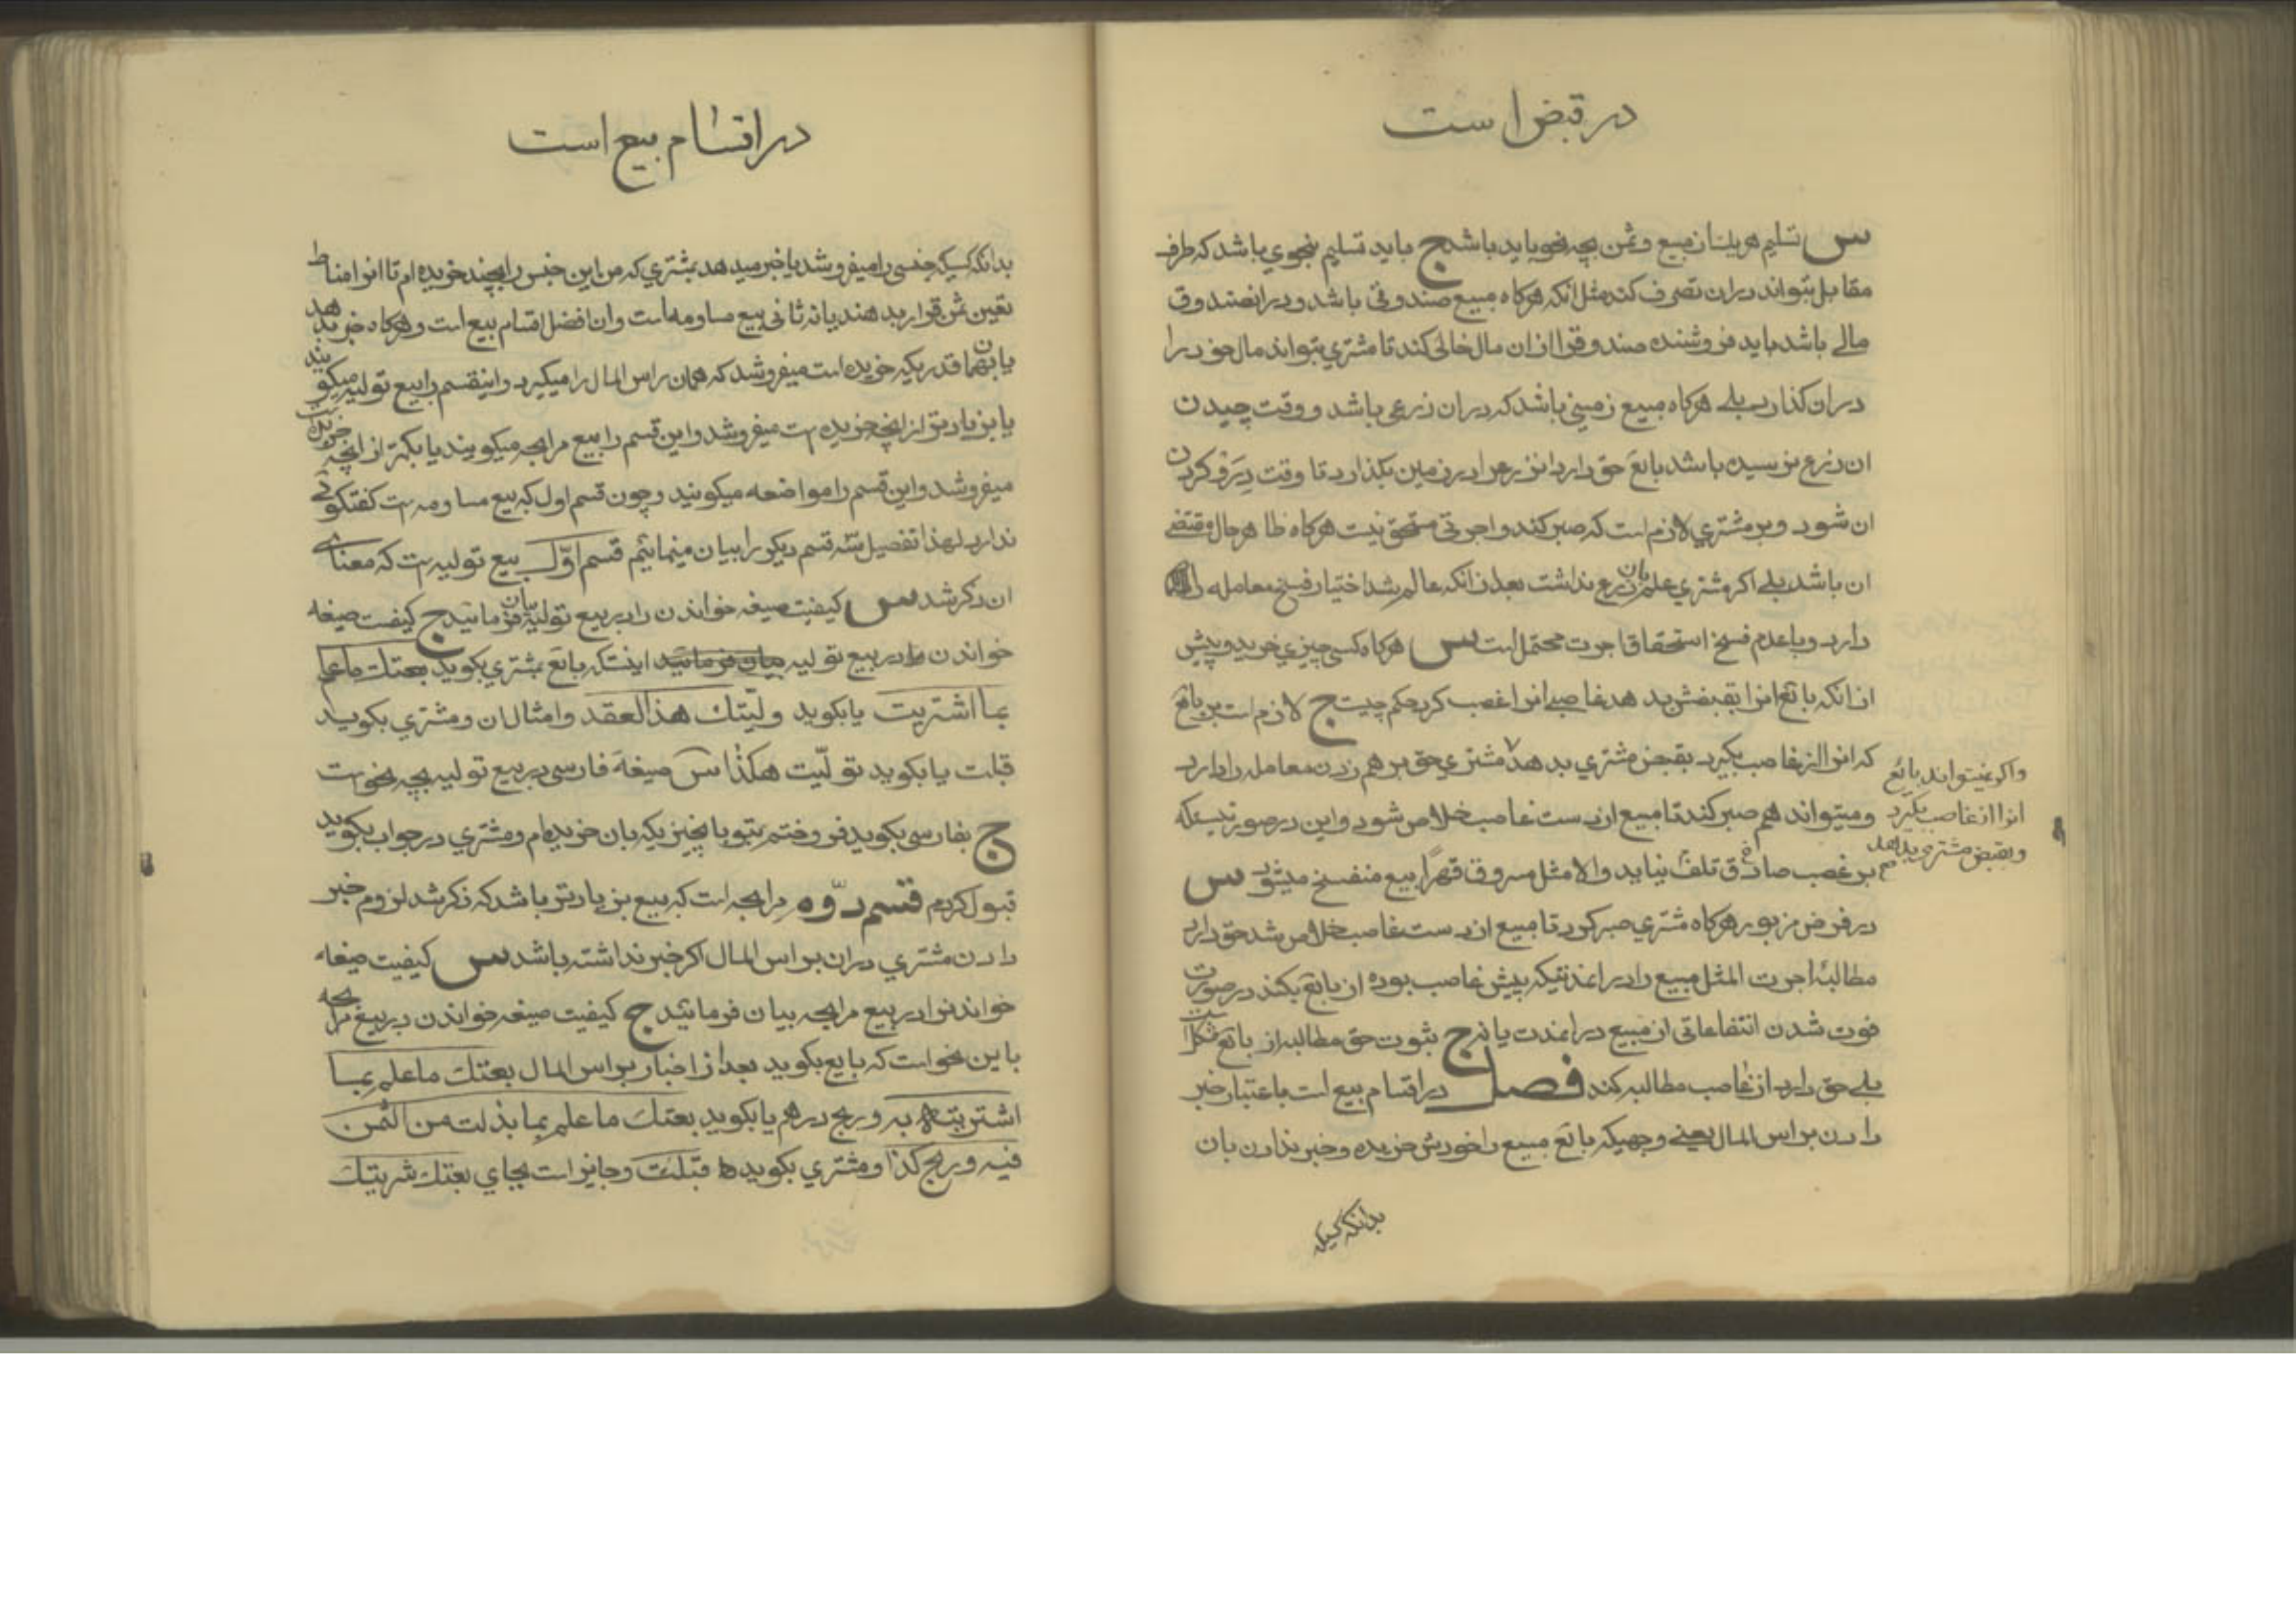 در قبض است
س تسلیم هریک از مبیع و ثمن بچه نحو باید باشد ج باید تسلیم بنحوی باشد که طرف
مقابل بتواند در ان تصرف کند مثل انکه هرکاه مبیع صندوقی باشد و در انصندوق
مالی باشد باید فروشنده صندوقرا از ان مال خالی کند تا مشتری بتواند مال خود را
در ان کذارد بلی هرکاه مبیع زمینی باشد که در ان زرعی باشد و وقت چیدن
ان زرع نرسیده باشد بائع حق دارد انزرعرا در زمین بکذارد تا وقت درو کردن
ان شود و بر مشتری لازم است که صبر کند و اجرتی مستحق نیست هرکاه ظاهر حال مقتضی
ان باشد بلی اکر مشتری علم بان زرع نداشت بعد از انکه عالم شد اختیار فسخ معامله را
دارد و با عدم فسخ استحقاق اجرت محتمل است س هرکاه کسی چیزی خرید و پیش
از انکه بائع انرا بقبضش بدهد غاصبی انرا غصب کرد حکم چیست ج لازم است بر بائع
که انرا از غاصب بکیرد بقبض مشتری بدهد مشتری حق بر هم زدن معامله را دارد
واکر نمیتواند بائع
انرا از غاصب بکیرد
و بقبض مشتری بدهد
و میتواند هم صبر کند تا مبیع از دست غاصب خلاص شود و این در صورتیستکه
بر غصب صادق تلف نیاید والا مثل مسروق قهرًا بیع منفسخ میشود س
در فرض مزبور هرکاه مشتری صبر کرد تا مبیع از دست غاصب خلاص شد حق دارد
مطالبهٔ اجرت المثل مبیع را در انمدتیکه پیش غاصب بوده از بائع بکند در صورت
فوت شدن انتفاعاتی از مبیع در انمدت یا نه ج ثبوت حق مطالبه از بائع مشکل است
بلی حق دارد از غاصب مطالبه کند فصل در اقسام بیع است باعتبار خبر
دادن براس المال یعنی وجهیکه بائع مبیع را خودش خریده و خبر ندادن بان
بدانکه کسیکه
در اقسام بیع است
بدانکه کسیکه جنسی را میفروشد یا خبر میدهد بمشتری که من این جنس را بچند خریده ام تا انرا مناط
تعین ثمن قرار بدهند یا نه ثانی بیع مساومه است وان افضل اقسام بیع است و هرکاه خبر بدهد
یا بهمان قدریکه خریده است میفروشد که همان راس المال را میکیرد و اینقسم را بیع تولیه میکویند
یا بزیادتر از انچه خریده است میفروشد و این قسم را بیع مرابحه میکویند یا بکمتر از انچه خریده است
میفروشد و این قسم را مواضعه میکویند و چون قسم اول که بیع مساومه است کفتکوئی
ندارد لهذا تفصیل سه قسم دیکر را بیان مینمائیم قسم اوّل بیع تولیه است که معنای
ان ذکر شد س کیفیت صیغه خواندن را در بیع تولیه بیان فرمائید ج کیفیت صیغه
خواندن در بیع تولیه بیان فرمائید اینست که بائع بمشتری بکوید بعتك ما علم
بما اشتریت یا بکوید ولیّتك هذا العقد و امثال ان و مشتری بکوید
قبلت یا بکوید تولّیت هکذا س صیغهٔ فارسی در بیع تولیه بچه نحو است
ج بفارسی بکوید فروختم بتو با بچیزیکه بان خریده ام و مشتری در جواب بکوید
قبول کردم قسم دوّم مرابحه است که بیع بزیادتر باشد که ذکر شد لزوم خبر
دادن مشتری در ان براس المال اکر خبر نداشته باشد س کیفیت صیغه
خواندنرا در بیع مرابحه بیان فرمائید ج کیفیت صیغه خواندن در بیع مرابحه
باین نحو است که بایع بکوید بعد از اخبار براس المال بعتك ما علم بما
اشتریته به و ربح درهم یا بکوید بعتك ما علم بما بذلت من الثمن
فیه و ربح کذا و مشتری بکوید قبلت و جایز است بجای بعتك شریتك